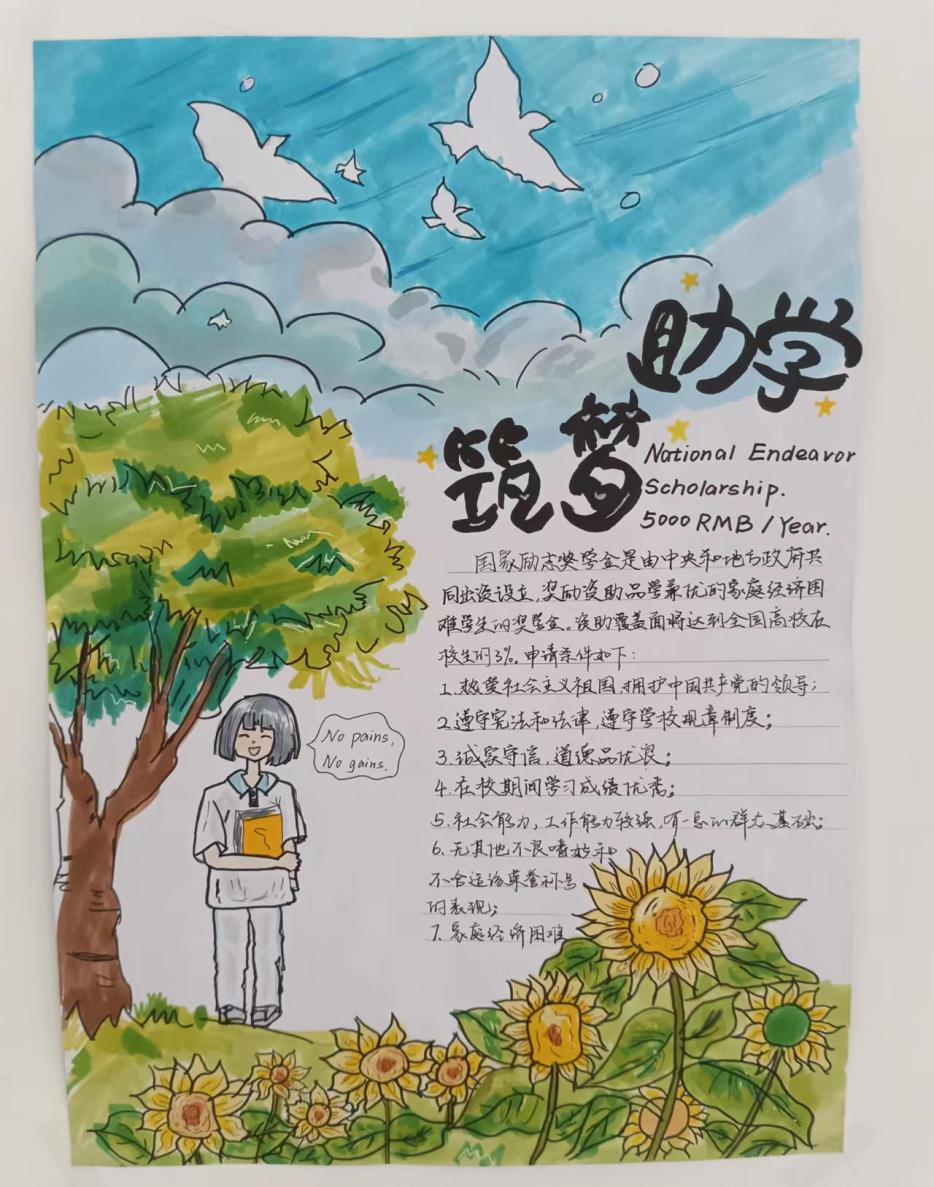 助学
筑梦
National Endeavor
Scholarship.
5000 RMB / Year.
国家励志奖学金是由中央和地方政府共
同出资设立,奖励资助品学兼优的家庭经济困
难学生的奖学金。资助覆盖面将达到全国高校在
校生的3%。申请条件如下:
1.热爱社会主义祖国,拥护中国共产党的领导;
2.遵守宪法和法律,遵守学校规章制度;
3.诚实守信,道德品优良;
4.在校期间学习成绩优秀;
5.社会能力,工作能力较强,有一定的群众基础;
6.无其他不良嗜好和
不合适该荣誉称号
的表现;
7.家庭经济困难
No pains,
No gains.